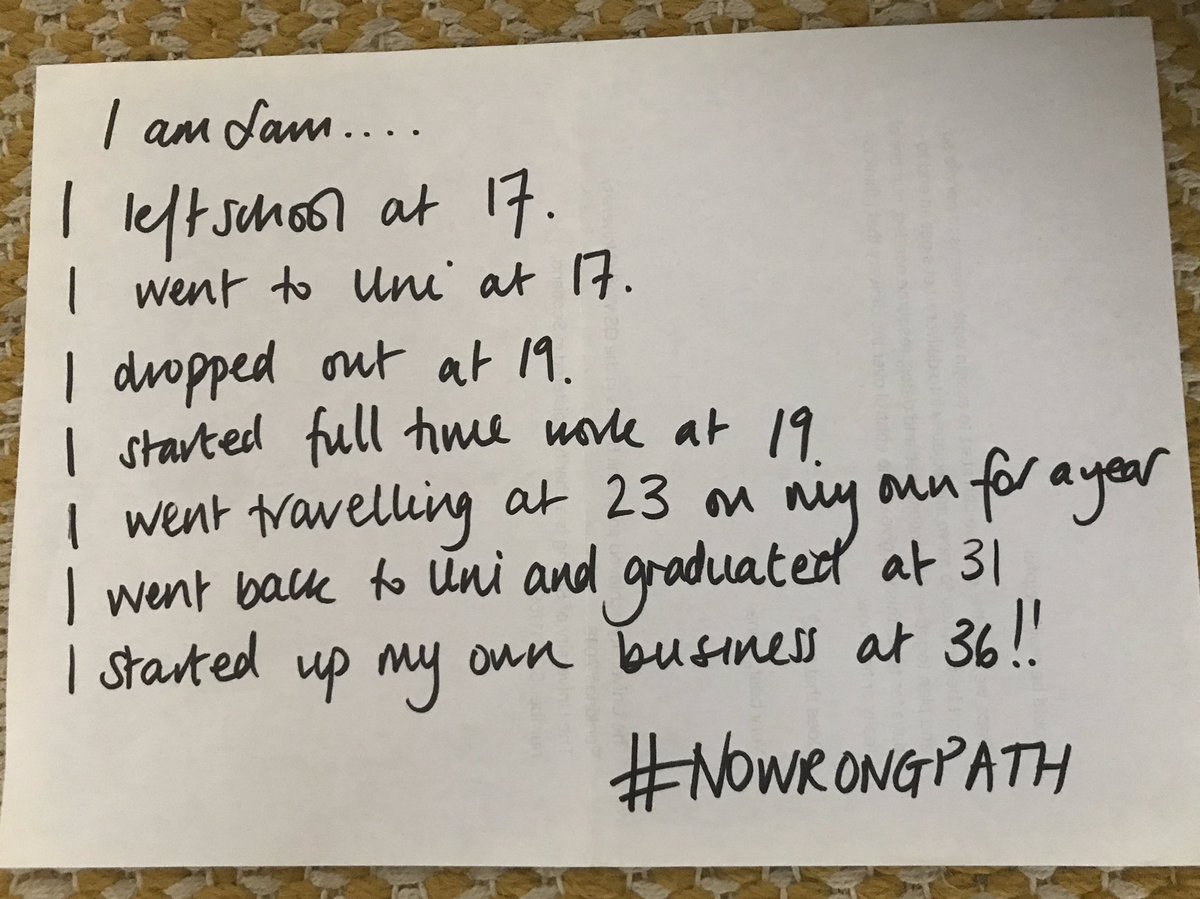 I am Sam....
I left school at 17.
I went to Uni at 17.
I dropped out at 19.
I started full time work at 19.
I went travelling at 23 on my own for a year
I went back to Uni and graduated at 31
I started up my own business at 36!!
#NOWRONGPATH